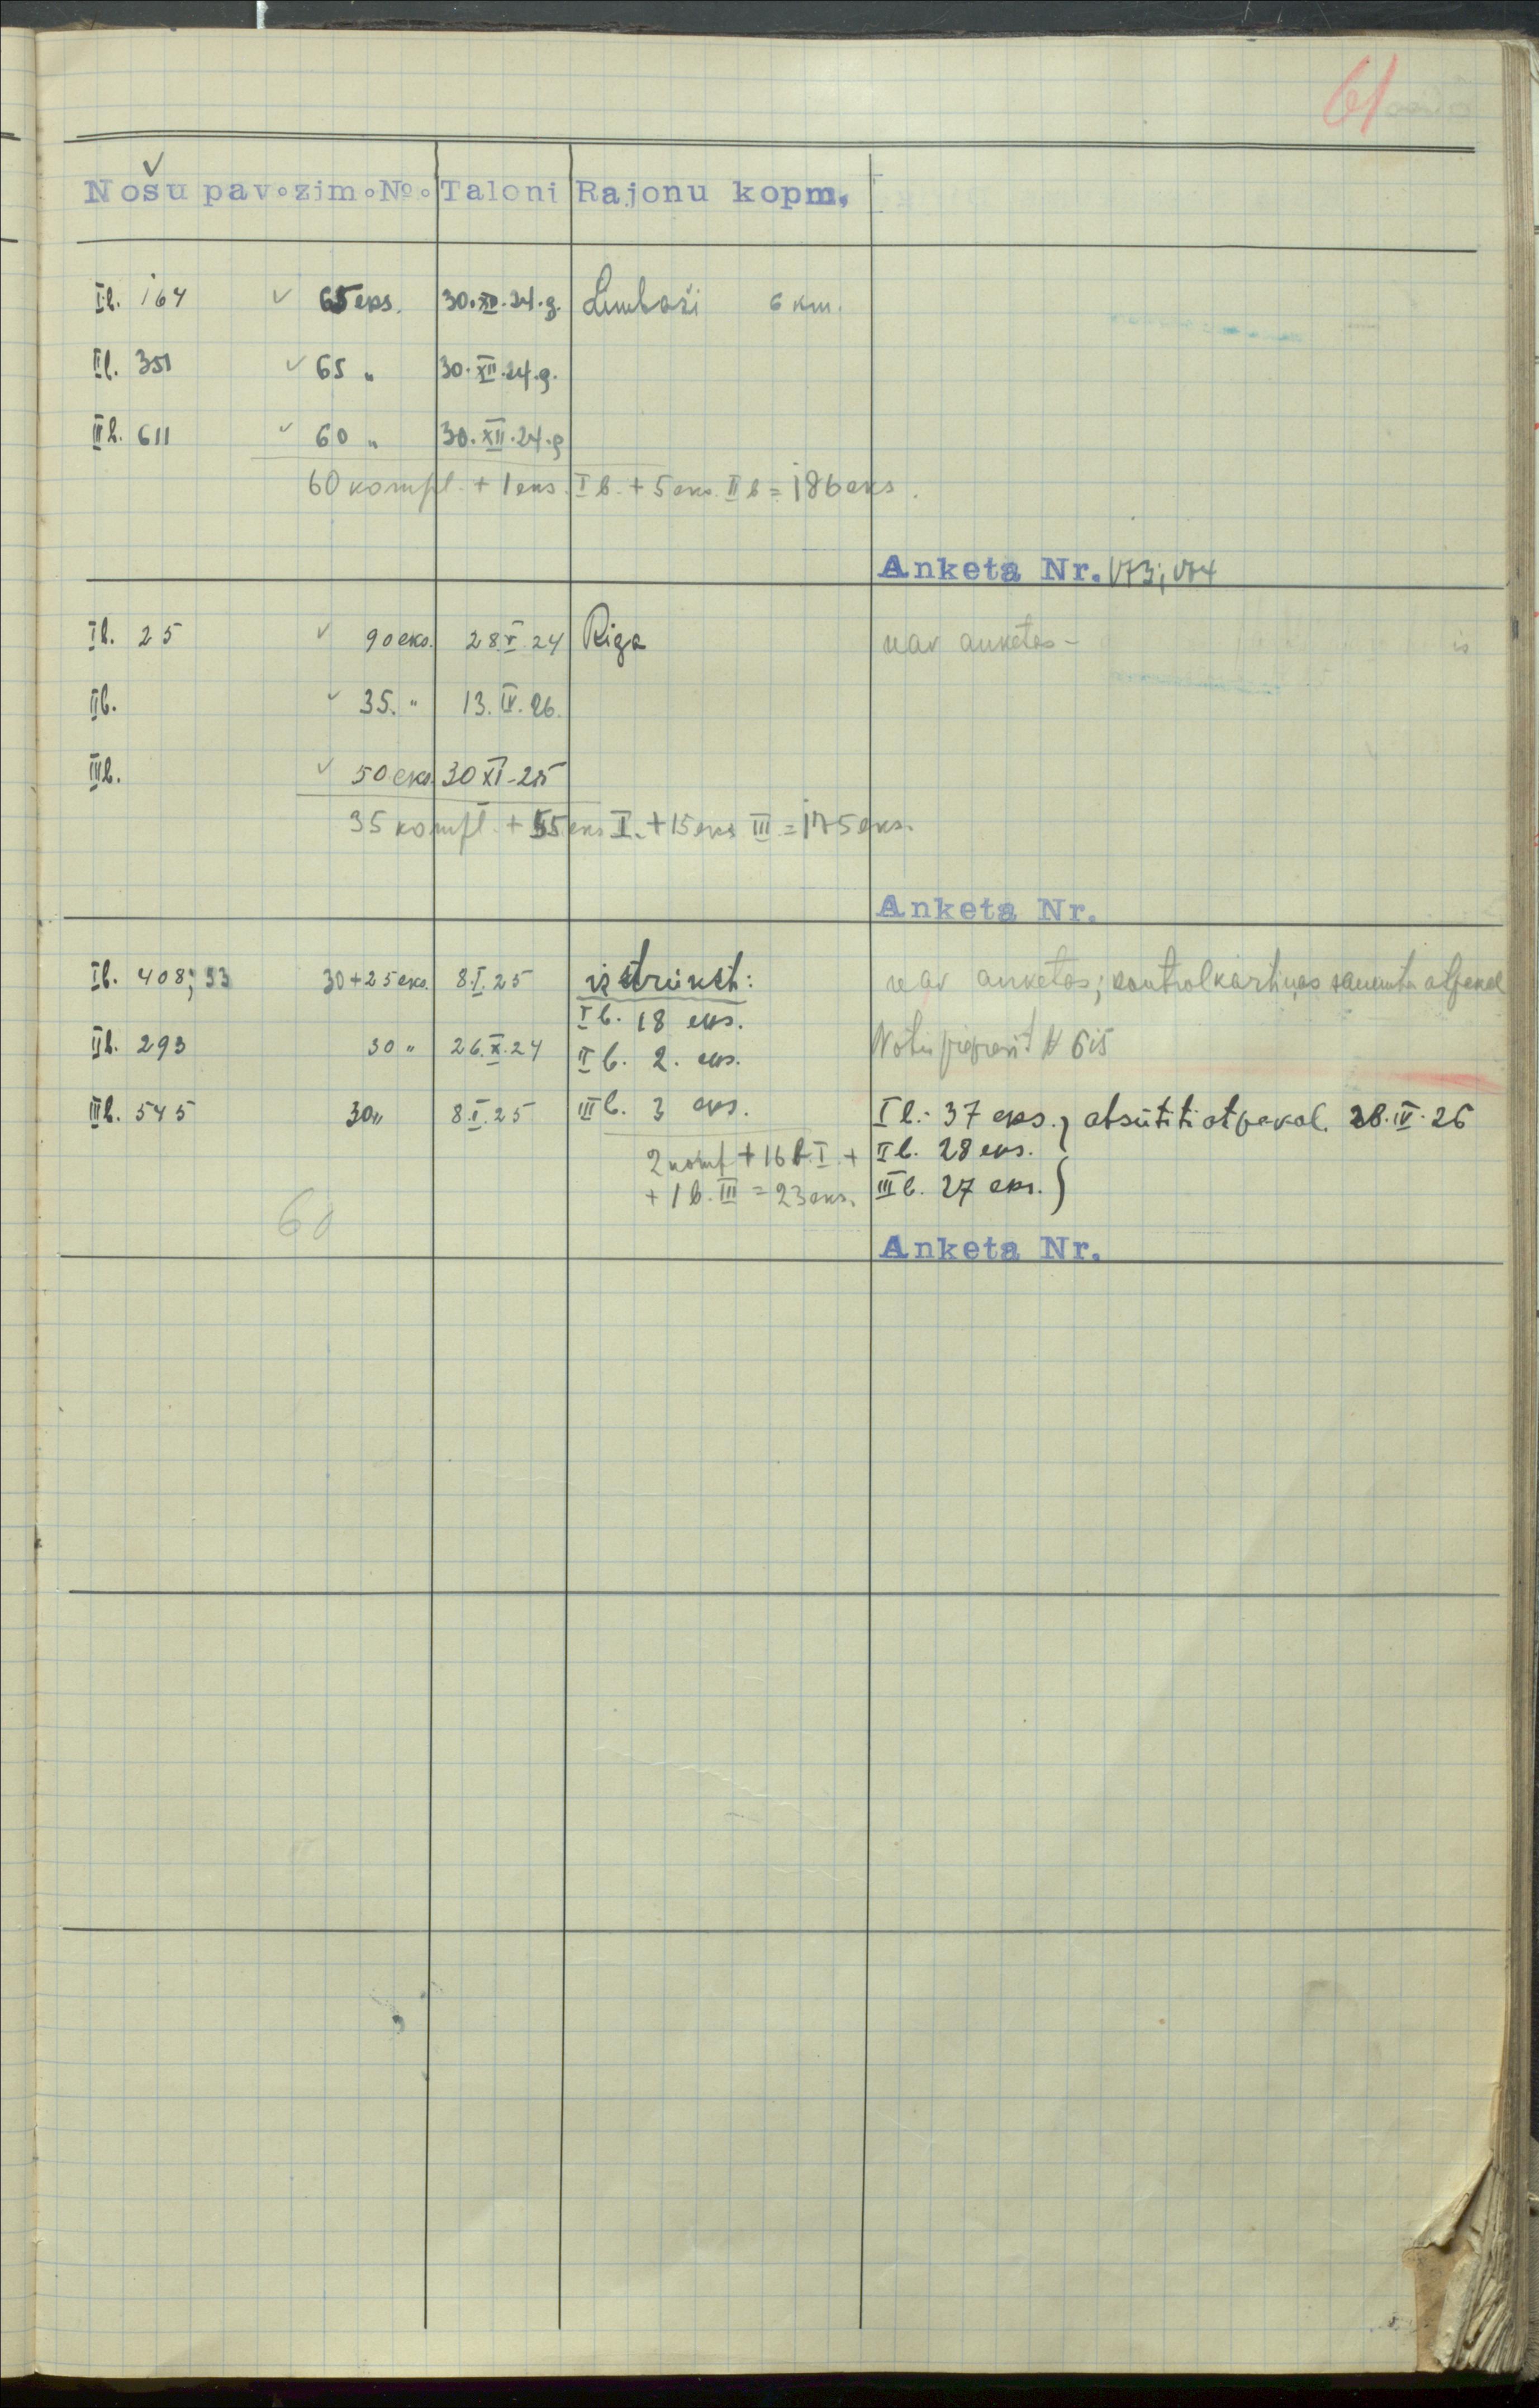 61
Nošu pav. zim. No. Taloni Rajonu kopm.
I b. 164 ✓ 65 eks. 30.XII.24.g. Limbaži 6 km.
II b. 351 ✓ 65 " 30.XII.24.g.
III b. 611 ✓ 60 " 30.XII.24.g
60 kompl. + 1 eks. I b. + 5 eks. II b = 186 eks.
Anketa Nr. 173; 174
I b. 25 ✓ 90 eks. 28.V.24 Riga nav anketas -
II b. ✓ 35. " 13.IV.26.
III b. ✓ 50 eks. 30 XI-25
35 kompl. + 55 eks I. + 15 eks III = 175 eks.
Anketa Nr.
I b. 408; 93 30+25 eks. 8.I.25 iztrūkst: nav anketas; kontrolkartiņas saņemtas atpakaļ
I b. 18 eks.
II b. 293 30 " 26.X.24 II b. 2. eks. Notis pieprasīt N 615
III b. 545 30 " 8.I.25 III b. 3 eks. I b. - 37 eks. } atsūtiti atpakaļ. 28.IV.26
2 kompl + 16 b. I. + II b. 28 eks.
+ 1 b. III = 23 eks. III b. 27 eks. }
60
Anketa Nr.